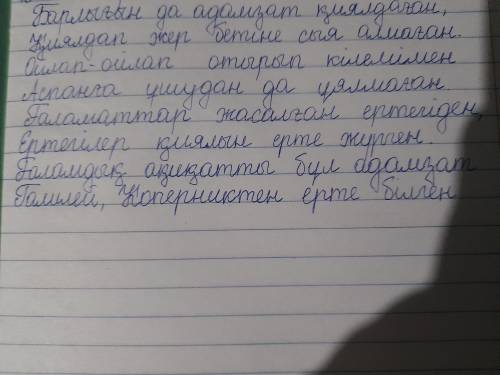 Барлығын да адамзат қиялдаған,
Қиялдап жер бетіне сыя алмаған.
Ойлап-ойлап отырып кілемімен
Аспанға ұшудан да ұялмаған.
Ғаламаттар жасалған ертегіден,
Ертегілер қиялын ерте жүрген.
Ғаламдық ақиқатты бұл адамзат
Галилей, Коперниктен ерте білген